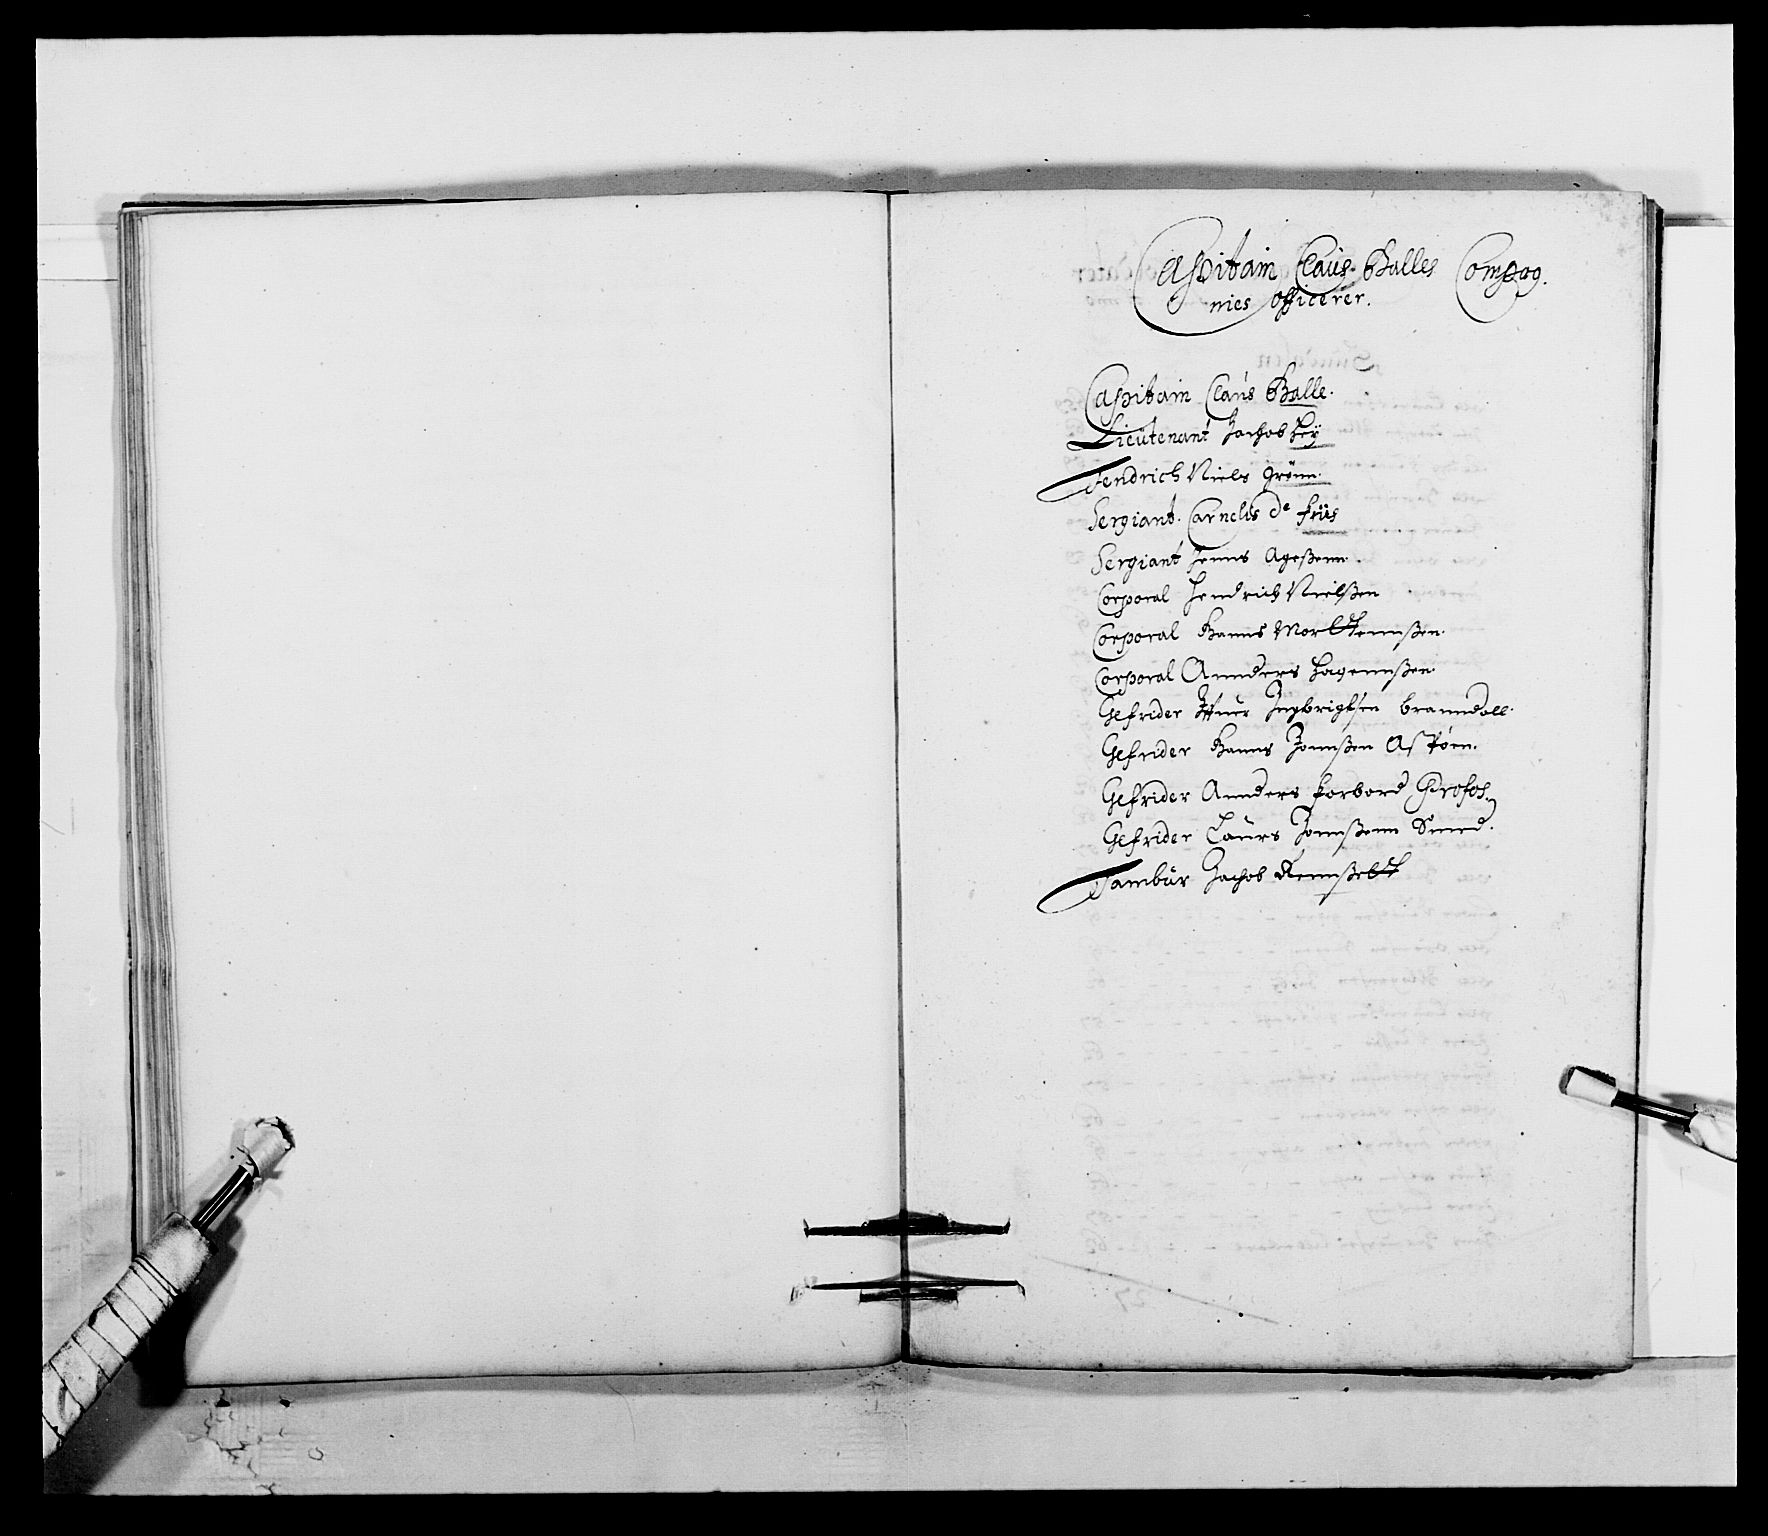 Capitain Claus Balles Compag.
nies Officerer.
Capitain Claus Balle.
Lieutenant Jachob Hey
Fendrich Niels Grönn.
Sergiant. Carnelis de friis
Sergiant Jenns Ageßenn.
Corporal Hendrich Nielßen
Corporal Hanns Mortennßen.
Corporal Annders Hagennßen.
Gefrider Iffuer Ingbrigtsen branndoll.
Gefrider Hanns Jonnßen Aspöen.
Gefrider Annders forbord Profos.
Gefrider Laurs Jonnßenn Smed.
Tambur Jachob